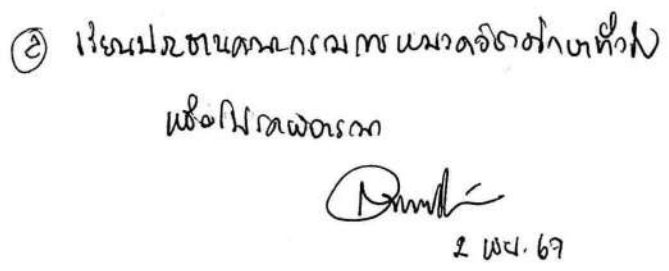 ② เรียนประธานคณะกรรมการหมวดวิชาศึกษาทั่วไป
เพื่อโปรดพิจารณา
2 พย. 67